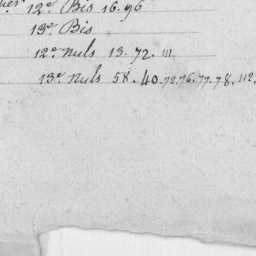 12e. Bis 16. 96
13e. Bis
12e. nuls 13. 72. 111
13e. nuls 58. 40. 72. 76. 77. 78. 112.